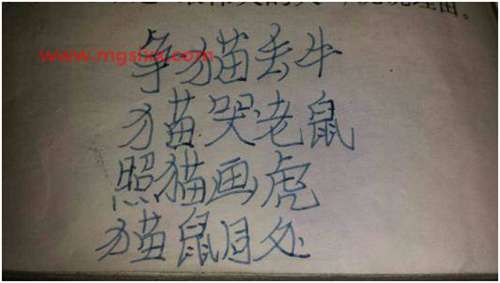 由。
www.mgslxx.com
争猫丢牛
猫哭老鼠
照猫画虎
猫鼠目处